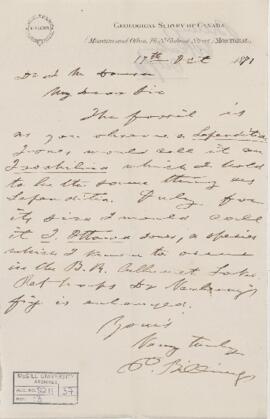 GEOLOGICAL SURVEY OF CANADA
Museum and Office, 76 St. Gabriel Street, MONTREAL.
17th Oct 1871
Dr J W Dawson
My dear Sir
The fossil is
as you observe a Leperditia
Jones would call it an
Isochilina which I hold
to be the same thing as
Leperditia. Judging from
its size I would call
it I. Ottawa Jones, a species
which I know to occur
in the B.R. Calumet Lake.
Perhaps Dr
fig is enlarged.
Yours
Very truly
E. Billings
McGILL UNIVERSITY
ARCHIVES
ACC. NO. 2211 37
REF.